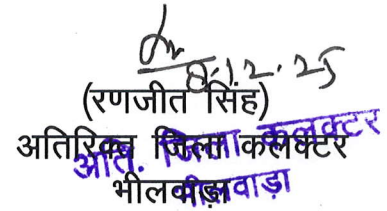 8.12.25
(रणजीत सिंह)
अतिरिक्त जिला कलक्टर
अति. जिला कलक्टर
भीलवाड़ा
भीलवाड़ा